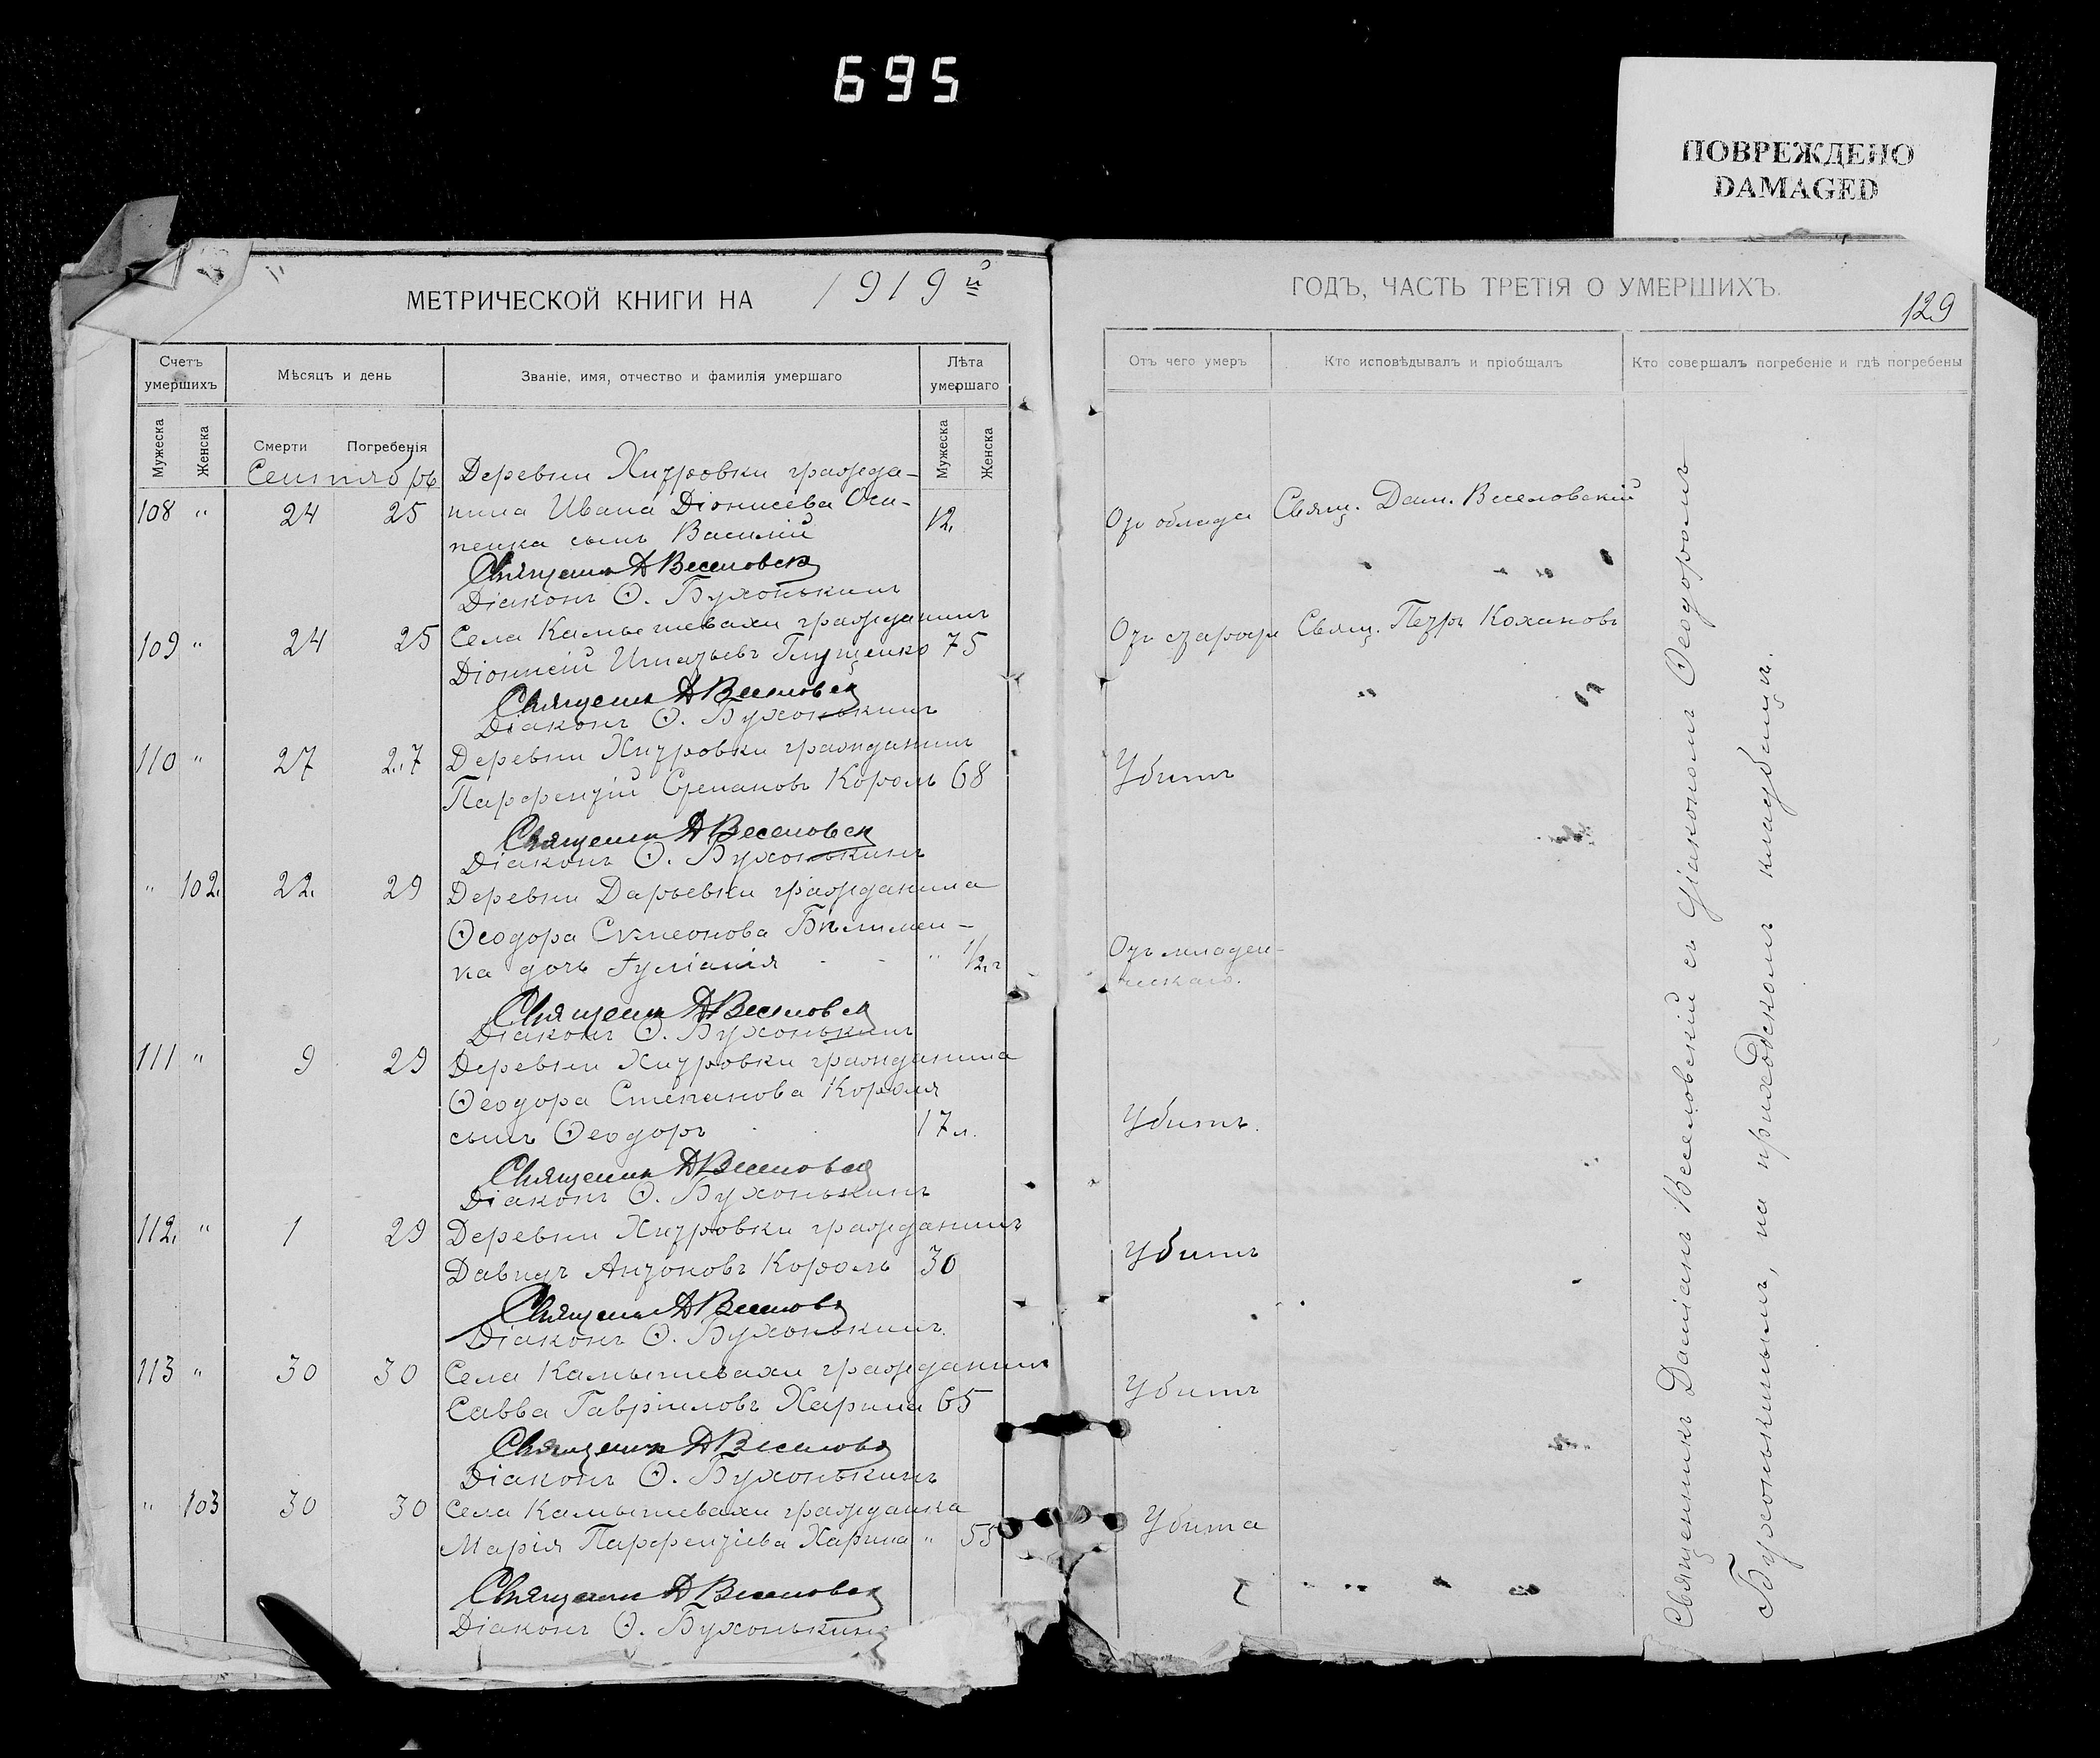 695
ПОВРЕЖДЕНО
DAMAGED
МЕТРИЧЕСКОЙ КНИГИ НА 1919 й
ГОДЪ, ЧАСТЬ ТРЕТІЯ О УМЕРШИХЪ.
129
Счетъ умершихъ
Мѣсяцъ и день
Званіе, имя, отчество и фамилія умершаго
Лѣта умершаго
Отъ чего умеръ
Кто исповѣдывалъ и пріобщалъ
Кто совершалъ погребеніе и гдѣ погребены
Мужеска
Женска
Смерти
Погребенія
Мужеска
Женска
Сентябрь
Деревни Хитровки гражда-
108 " 24 25 нина Ивана Діонисева Оси-
12
пенка сынъ Василій
Отъ
Свящ. Дам. Веселовскій
Священни Д Веселовск
Діаконъ Ѳ. Бухонькинъ
109 " 24 25 Села Камышевахи гражданинъ
Діонисій Игнатьевъ Глущенко 75
Отъ старости Свящ. Петръ Кохановъ
Священн Д Веселовск
Діаконъ Ѳ. Бухонькинъ
110 " 27 27 Деревни Хитровки гражданинъ
Парфентій Степановъ Король 68
Убитъ
Священн Д Веселовск
Діаконъ Ѳ. Бухонькинъ
" 102 22 29 Деревни Дарьевки гражданина
Ѳеодора Симеонова
ка дочь Іуліанія " 1/2 г
Отъ младен-
ческаго.
Священн Д Веселовск
Діаконъ Ѳ. Бухонькинъ
111 " 9 29 Деревни Хитровки гражданина
Ѳеодора Степанова Короля
сынъ Ѳеодоръ 17 л.
Убитъ.
Священн Д Веселовск
Діаконъ Ѳ. Бухонькинъ
112 " 1 29 Деревни Хитровки гражданинъ
Давидъ Антоновъ Король 30
Убитъ
Священн Д Веселовс
Діаконъ Ѳ. Бухонькинъ
113 " 30 30 Села Камышевахи гражданинъ
Савва Гавріиловъ Харина 65
Убитъ
Священн Д Веселовс
Діаконъ Ѳ. Бухонькинъ
" 103 30 30 Села Камышевахи гражданка
Марія Парфентіева Харина " 55
Убита
Священн Д Веселовск
Діаконъ Ѳ. Бухонькинъ
Священникъ Даміанъ Веселовскій съ діакономъ Ѳеодоромъ
Бухонькинымъ, на приходскомъ кладбищѣ.